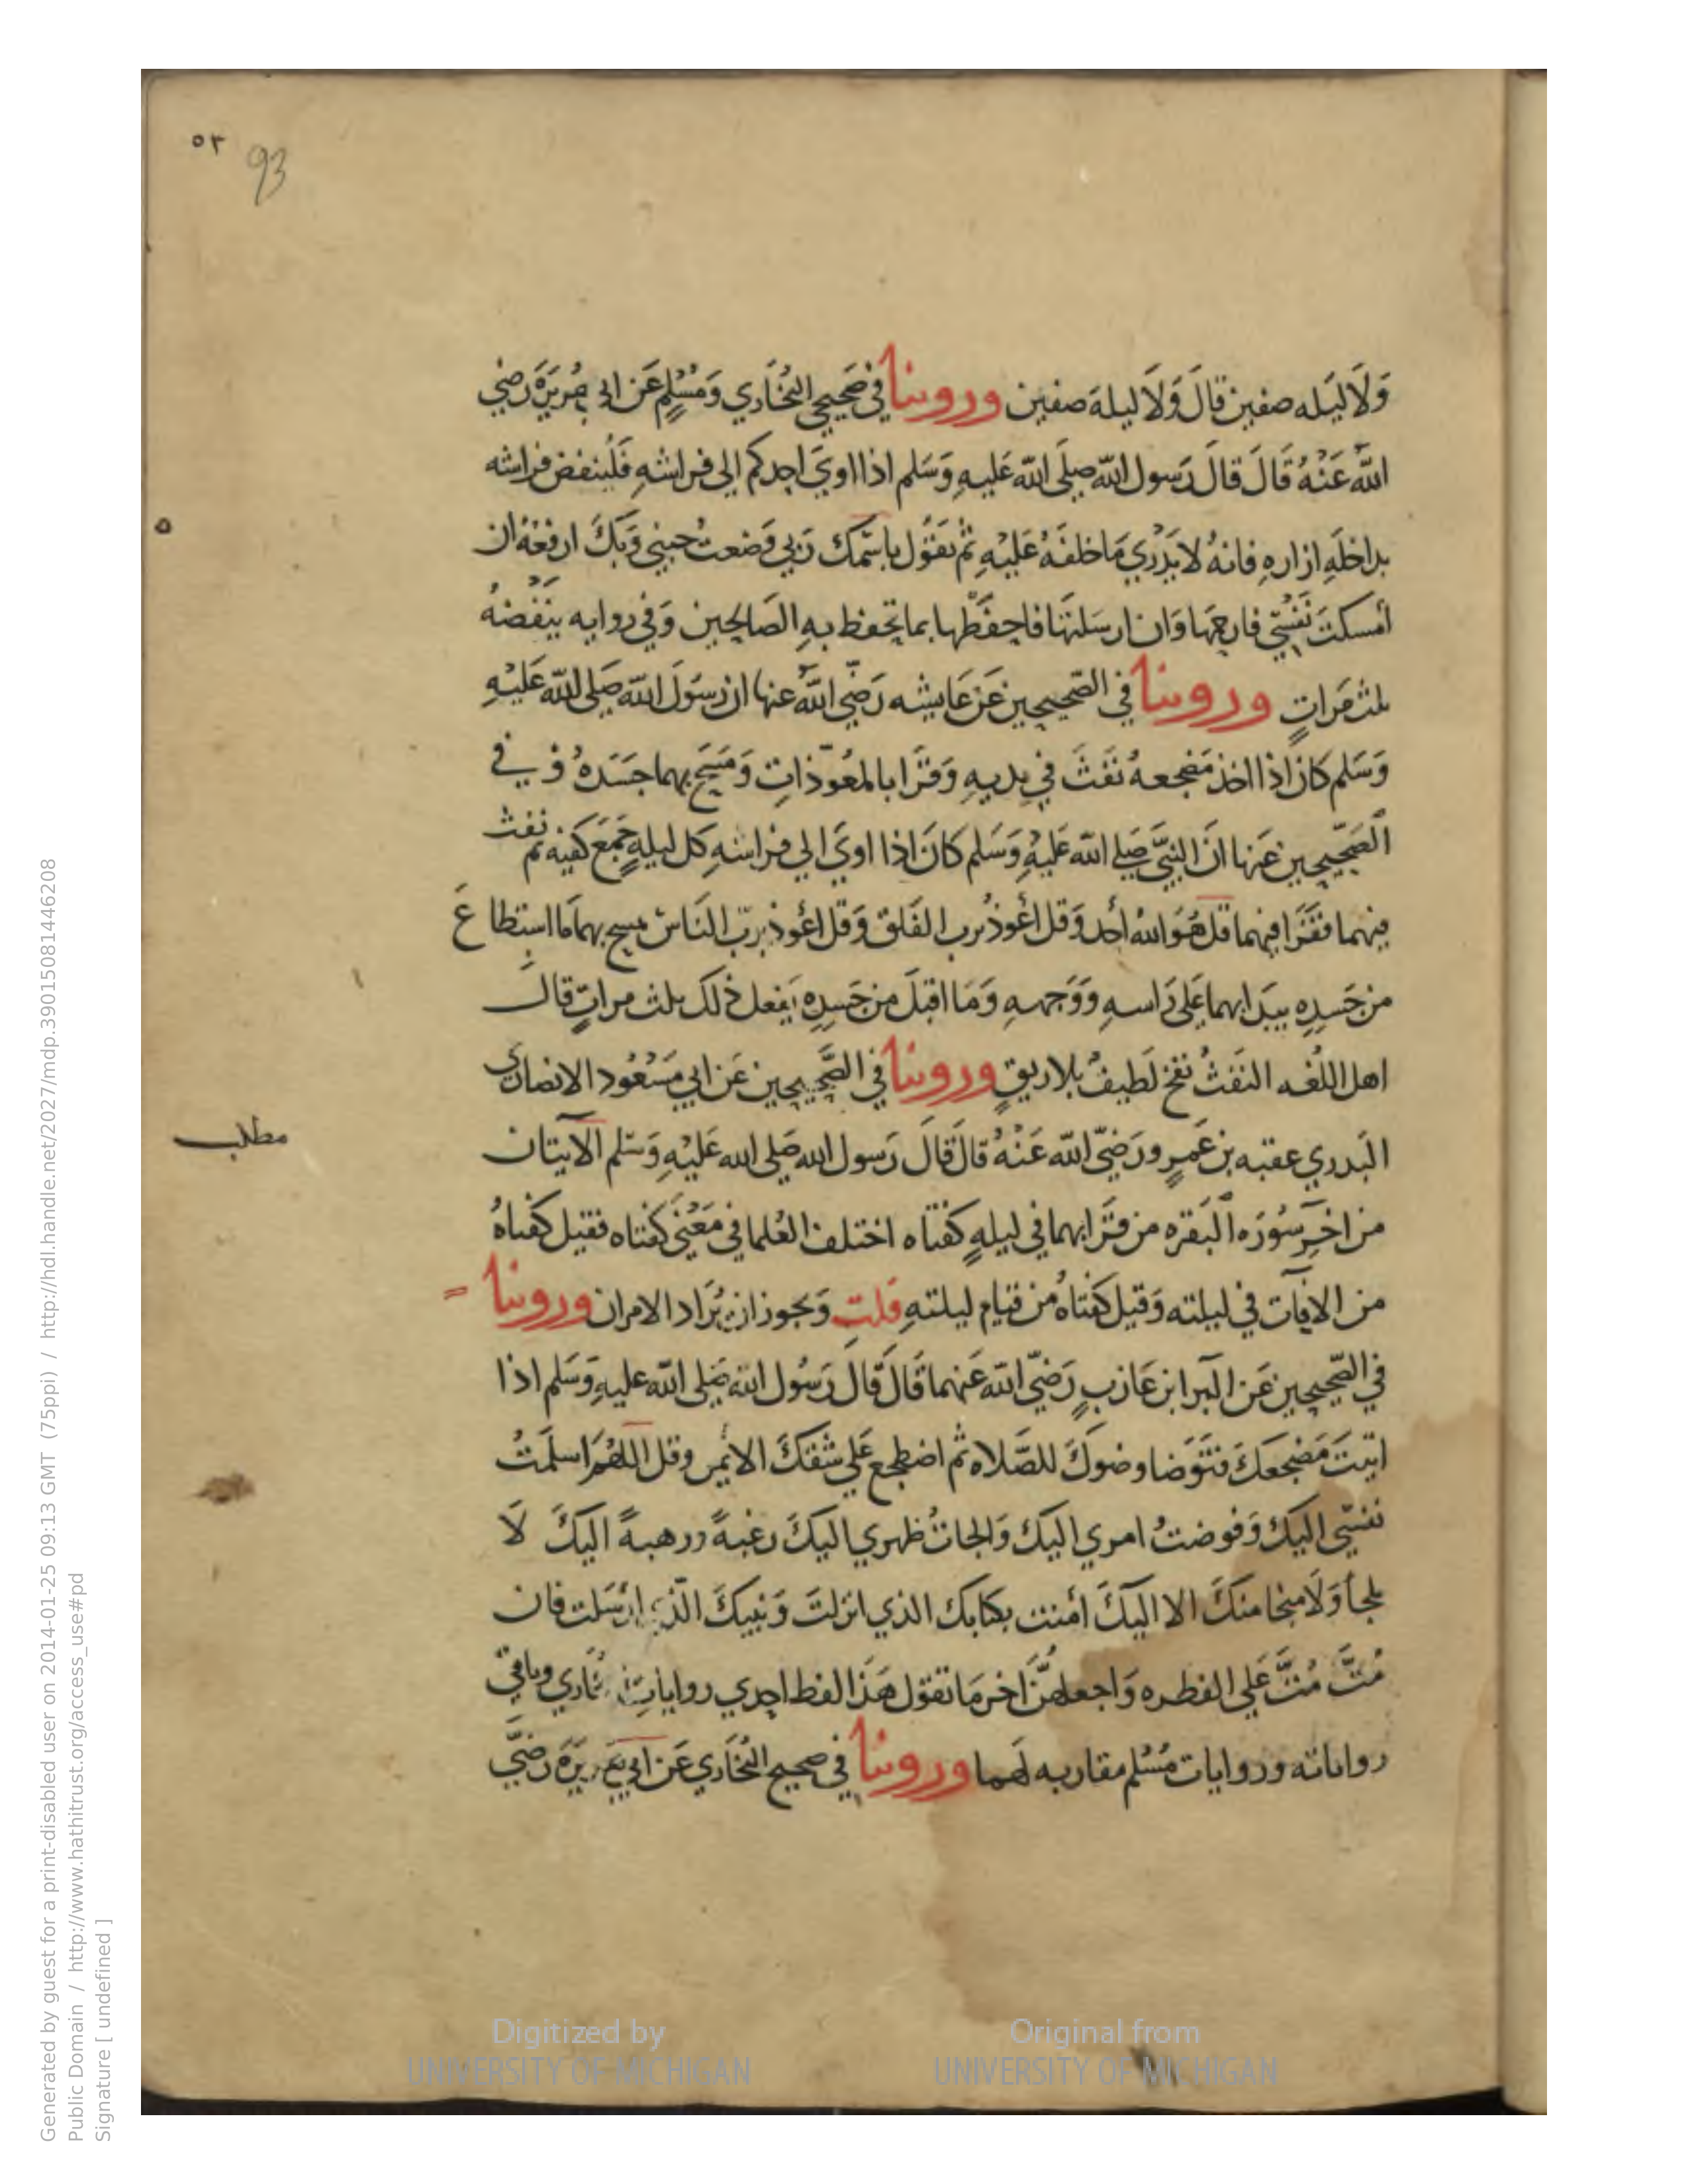 ٥٣
93
وَلَا ليَله صفين قالَ وَلَا ليلةَ صفين وروينا في صَحيحي البُخَاري وَمُسْلمٍ عَن ابي هُريَرَةَ رضي
اللّه عَنْهُ قَالَ قالَ رَسول اللّه صلَى اللّه عَليهِ وَسَلم اذا اويَ احدكم الى فراشهِ فَليُنفض فراشه
بداخلَهِ ازارهِ فانهُ لا يَدْري مَا خلفَهُ عَليْهِ ثم يَقوُل باسْمك رَبي وَضعت جنبي وَبكَ ارفعُه ان
أمسكتَ نَفسْي فارحمهَا وَان ارسَلتهَا فاحفَظْها بما تحفظ بهِ الصَالحين وَفي روايه ينْفضهُ
ثلث مَراتٍ وروينا في الصَحيحين عَن عَايشه رَضي اللّه عنها ان رسَوَل اللّه صَلى اللّه عَليْهِ
وَسَلم كان اذا اخذ مَضجعهُ نَفثَ في يديهِ وَقرَا بالمعَوّذاتِ وَمَسَح بهما جسَدَهُ وفي
الصَحيحين عَنها انَ النبيَّ صَلي اللّه عَليْهِ وَسَلم كانَ اذا اويَ الي فراشهِ كل ليلهٍ جمَعَ كفيه ثم نفث
فيهما فقَرَا فيهما قل هُوَ اللّهُ أحد وَقل اعُوذُ برب الفَلق وَقل اعُوذ بربّ النَاس مسح بهما مَا استطاعَ
من جَسدِه يبَدا بهما عَلى رَاسهِ وَوَجههِ وَمَا اقبَلَ من جَسدِهِ يَفعل ذلكَ ثلث مراتٍ قال
اهل اللغُه النفَثُ نفخ لَطيفُ بلا ريقٍ وروينا في الصَّحيحين عَن ابي مَسْعُود الانصاري
البَدري عقبه بن عَمرٍو رَضيَ اللّه عَنْهُ قالَ قَالَ رَسول اللّه صَلى الله عَليْهِ وَسَلم الآيتان
من اخرِ سُورَه البَقره من قرَا بهما في ليلهٍ كفتاه اختلف العُلما في مَعْنَي كفتاه فقيل كفتاهُ
من الافات في ليلته وَقيل كفتاهُ من قيام ليلتهِ قلت وَيجوز ان يُرَاد الامران وروينا
في الصَحيحين عَن البَرا ابن عَازبٍ رَضيَ اللّه عَنهما قَالَ قَالَ رَسُول اللّه صَلى اللّه عليهِ وَسَلم اذا
اتيتَ مَضْجعَكَ فتَوَضا وضوكَ للصَّلاه ثم اضطجع عَلي شقكَ الايمن وقل اللهُمَ اسلَمتُ
نفسَي اليكَ وَفوضتُ امري اليكَ وَالجاتُ ظهري اليكَ رغبهً ورهبهً اليكَ لَا
ملجأ وَلَا منجا منكَ الا اليَكَ أمنت بكتابك الذي انزلتَ وَنبيكَ الذي ارْسَلت فان
مُتَّ مُتَّ عَلي الفطره وَاجعلهنَّ اخر مَا تقول هَذا لفظ احدي روايات البخاري وباقي
رواياته وروايات مُسْلم مقاربه لهَما وروينا في صحيح البُخَاري عَن ابي هُريَرَة رضيَ
مطلب
Generated by guest for a print-disabled user on 2014-01-25 09:13 GMT (75ppi) / http://hdl.handle.net/2027/mdp.39015081446208
Public Domain / http://www.hathitrust.org/access_use#pd
Signature [ undefined ]
Digitized by
UNIVERSITY OF MICHIGAN
Original from
UNIVERSITY OF MICHIGAN